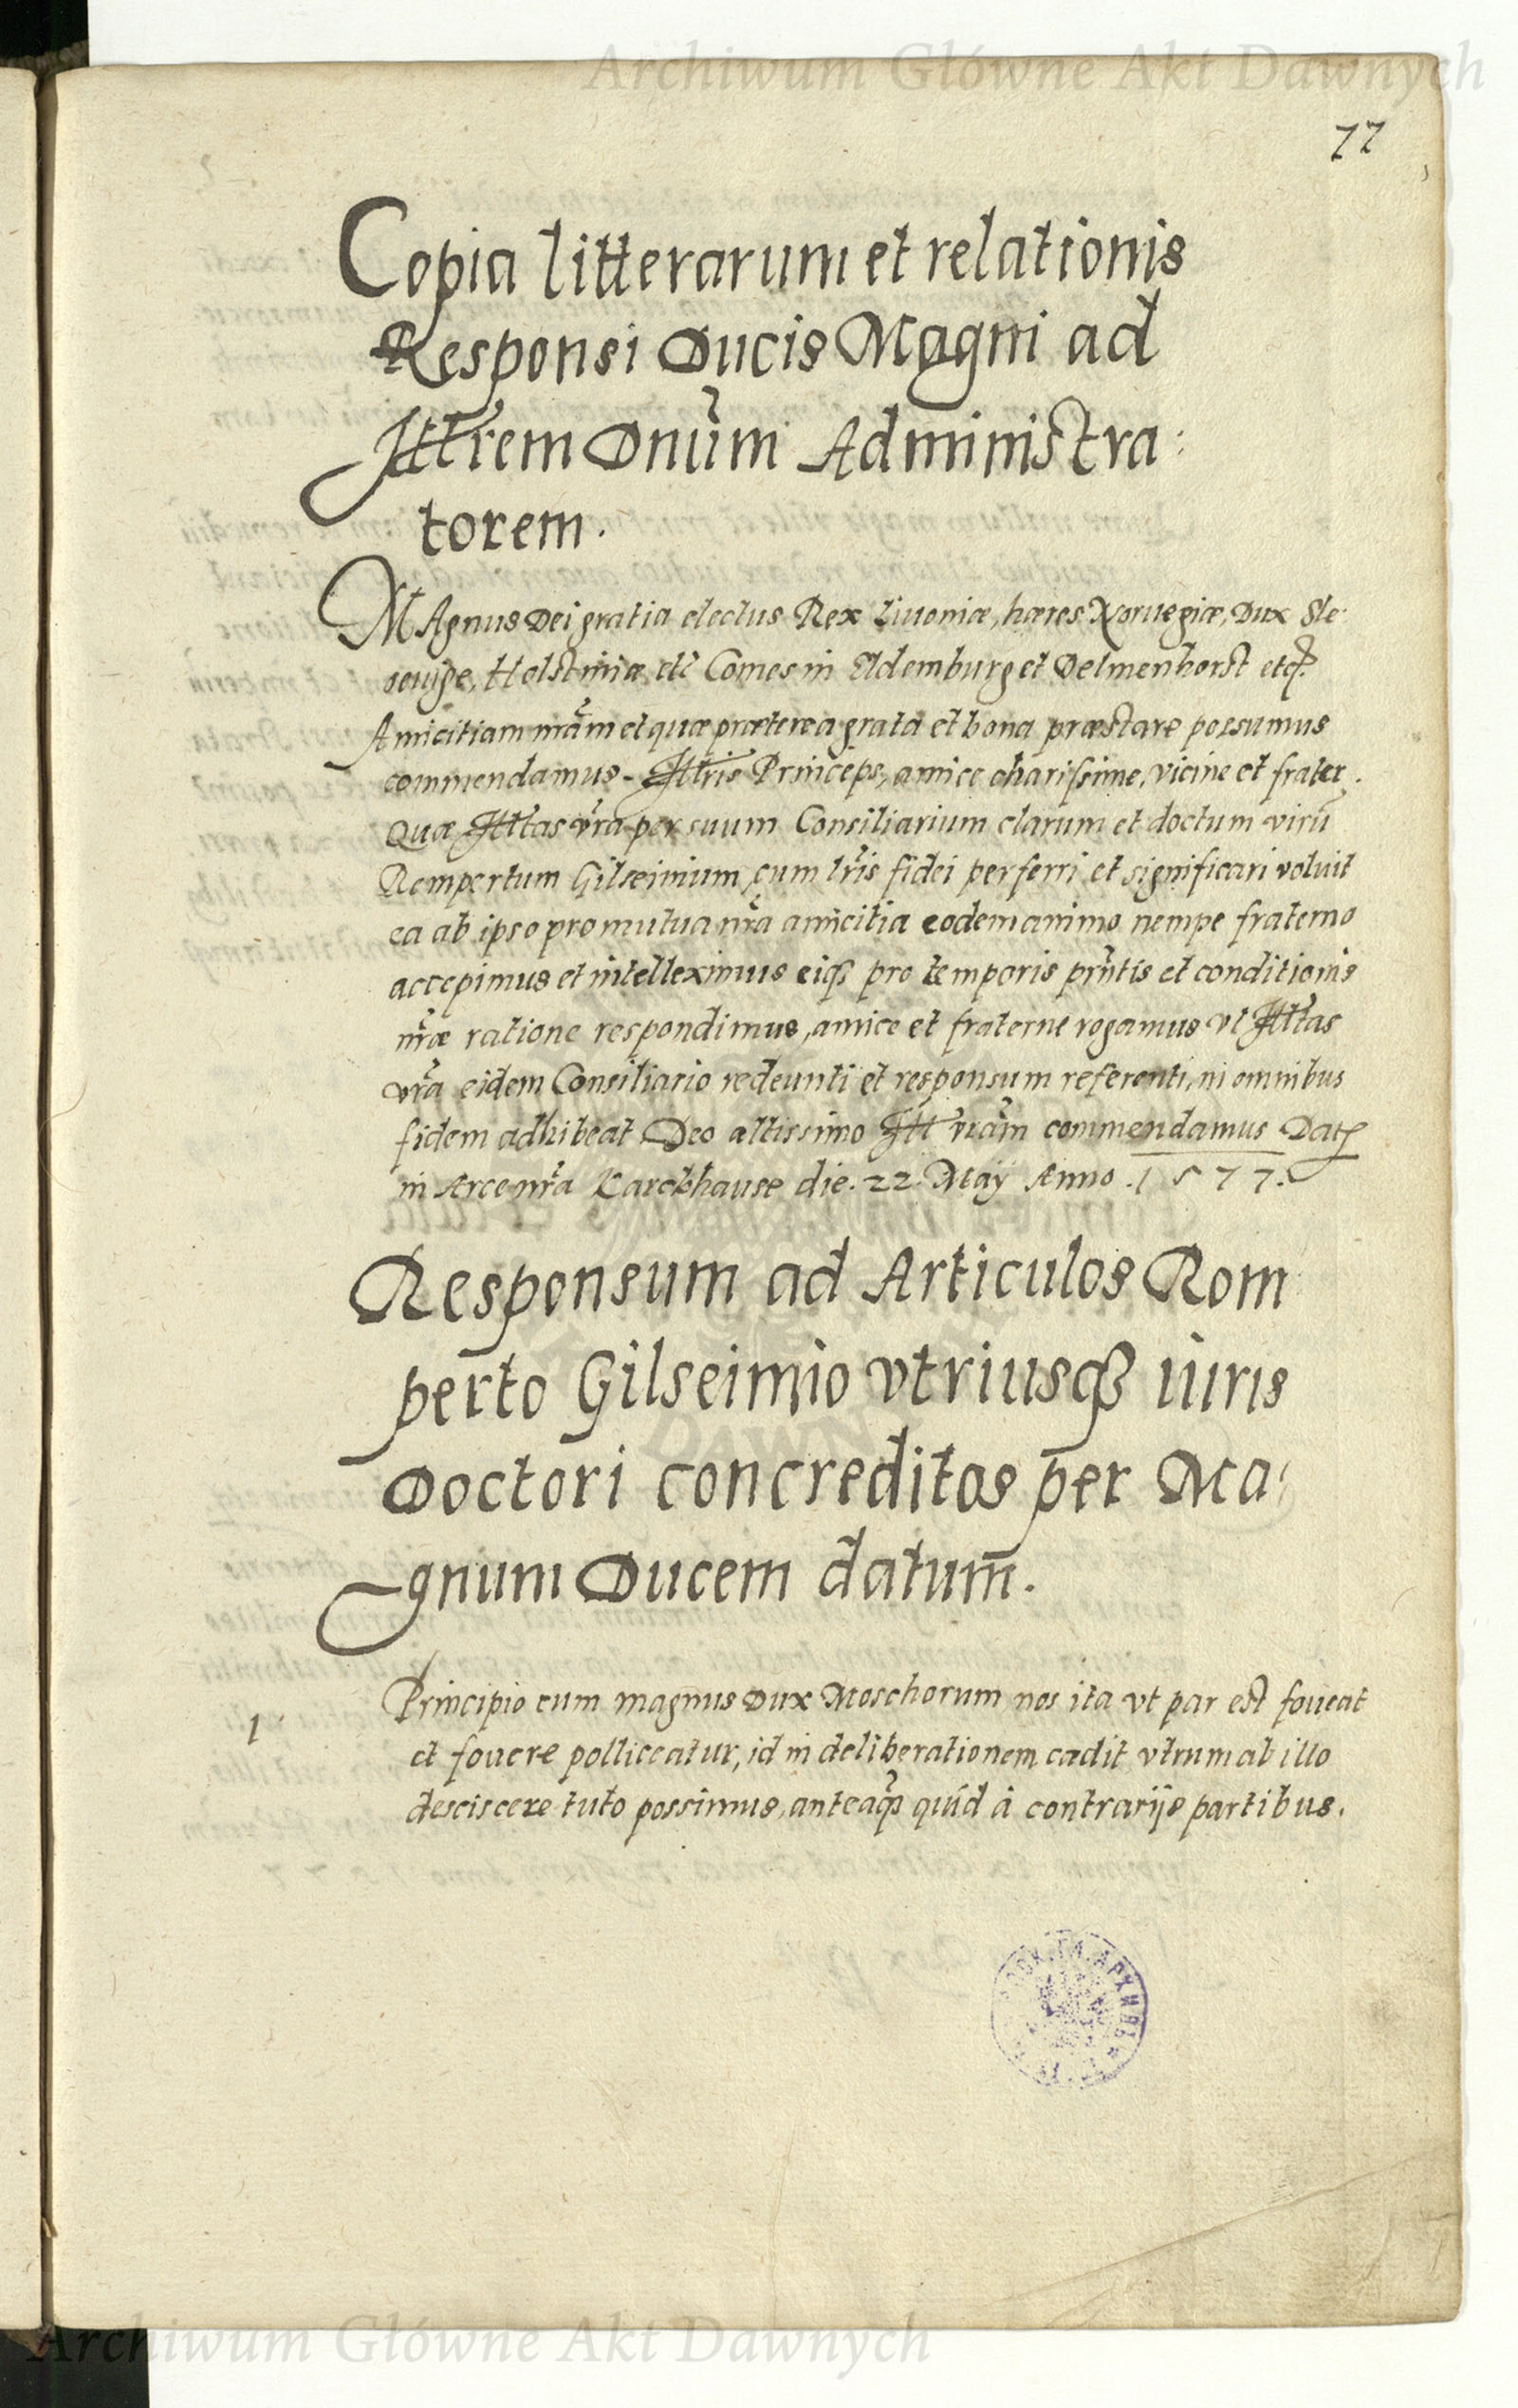 Archiwum Główne Akt Dawnych
77
Copia litterarum et relationis
Responsi Ducis Magni ad
Illrem Dnum Administra:
torem.
MAgnus Dei gratia electus Rex Liuoniæ, hæres Noruegiæ, Dux Sle:
souige, Holstiniæ etc Comes in Eldemburg et Delmenhorst etcꝫ
Amicitiam nrãm et quæ præterea grata et bona præstare possumus
commendamus - Illris Princeps, amice charissime, vicine et frater.
Quæ Illtas vrã per suum Consiliarium clarum et doctum virũ
Rompertum Gilseimium cum lris fidei perferri et significari voluit
ea ab ipso pro mutua nrã amicitia eodem animo nempe fraterno
accepimus et intelleximus eiqꝫ pro temporis prntis et conditionis
nræ ratione respondimus, amice et fraterne rogamus vt Illtas
vrã eidem Consiliario redeunti et responsum referenti, in omnibus
fidem adhibeat Deo altissimo Ill vrãm commendamus Dat
in Arce nrã Karckhause die. 22. Maÿ Anno. 1577.
Responsum ad Articulos Rom
perto Gilseimio vtriusqꝫ iuris
Doctori concreditos per Ma:
gnum Ducem datum.
1
Principio cum magnus Dux Moschorum nos ita vt par est foueat
et fouere polliceatur, id in deliberationem cadit vtrum ab illo
desciscere tuto possimus, anteaqꝫ quid à contrarijs partibus.
Archiwum Główne Akt Dawnych